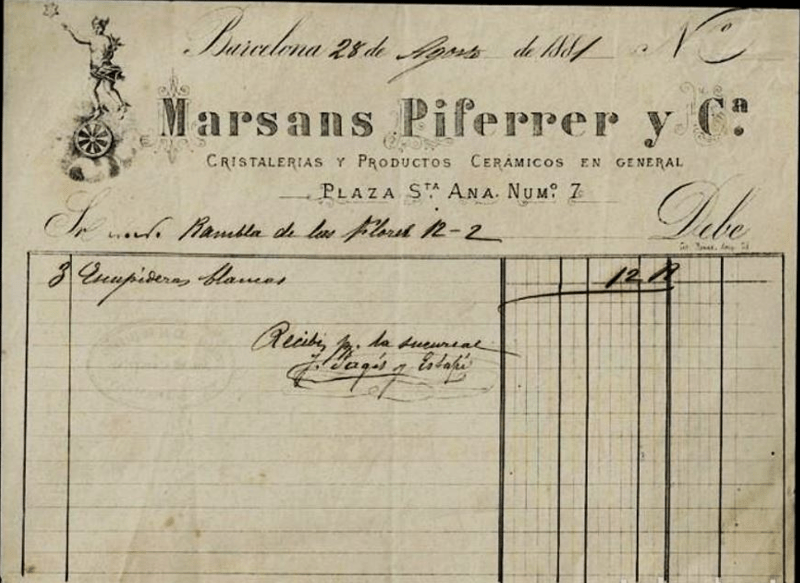 Barcelona 28 de Agosto de 1881 Nº
Marsans Piferrer y Cª
CRISTALERIAS Y PRODUCTOS CERÁMICOS EN GENERAL
PLAZA STA ANA. NUMº 7
Sr Rambla de las Flores 12-2 Debe
3 Escupideras blancas 12 R
Recibí p. la sucursal
J. Pagés y Estapé